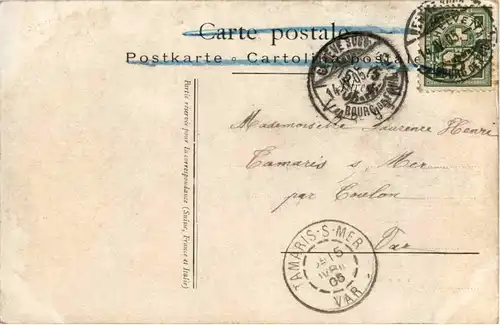 Carte postale
Postkarte - Cartolina postale
Partie réservée pour la correspondance (Suisse, France et Italie)
GENÈVE
BOURG DE FOUR
Mademoiselle Laurence Henri
Tamaris s Mer
par Toulon
Var
TAMARIS-S-MER
15
AVRIL
05
VAR